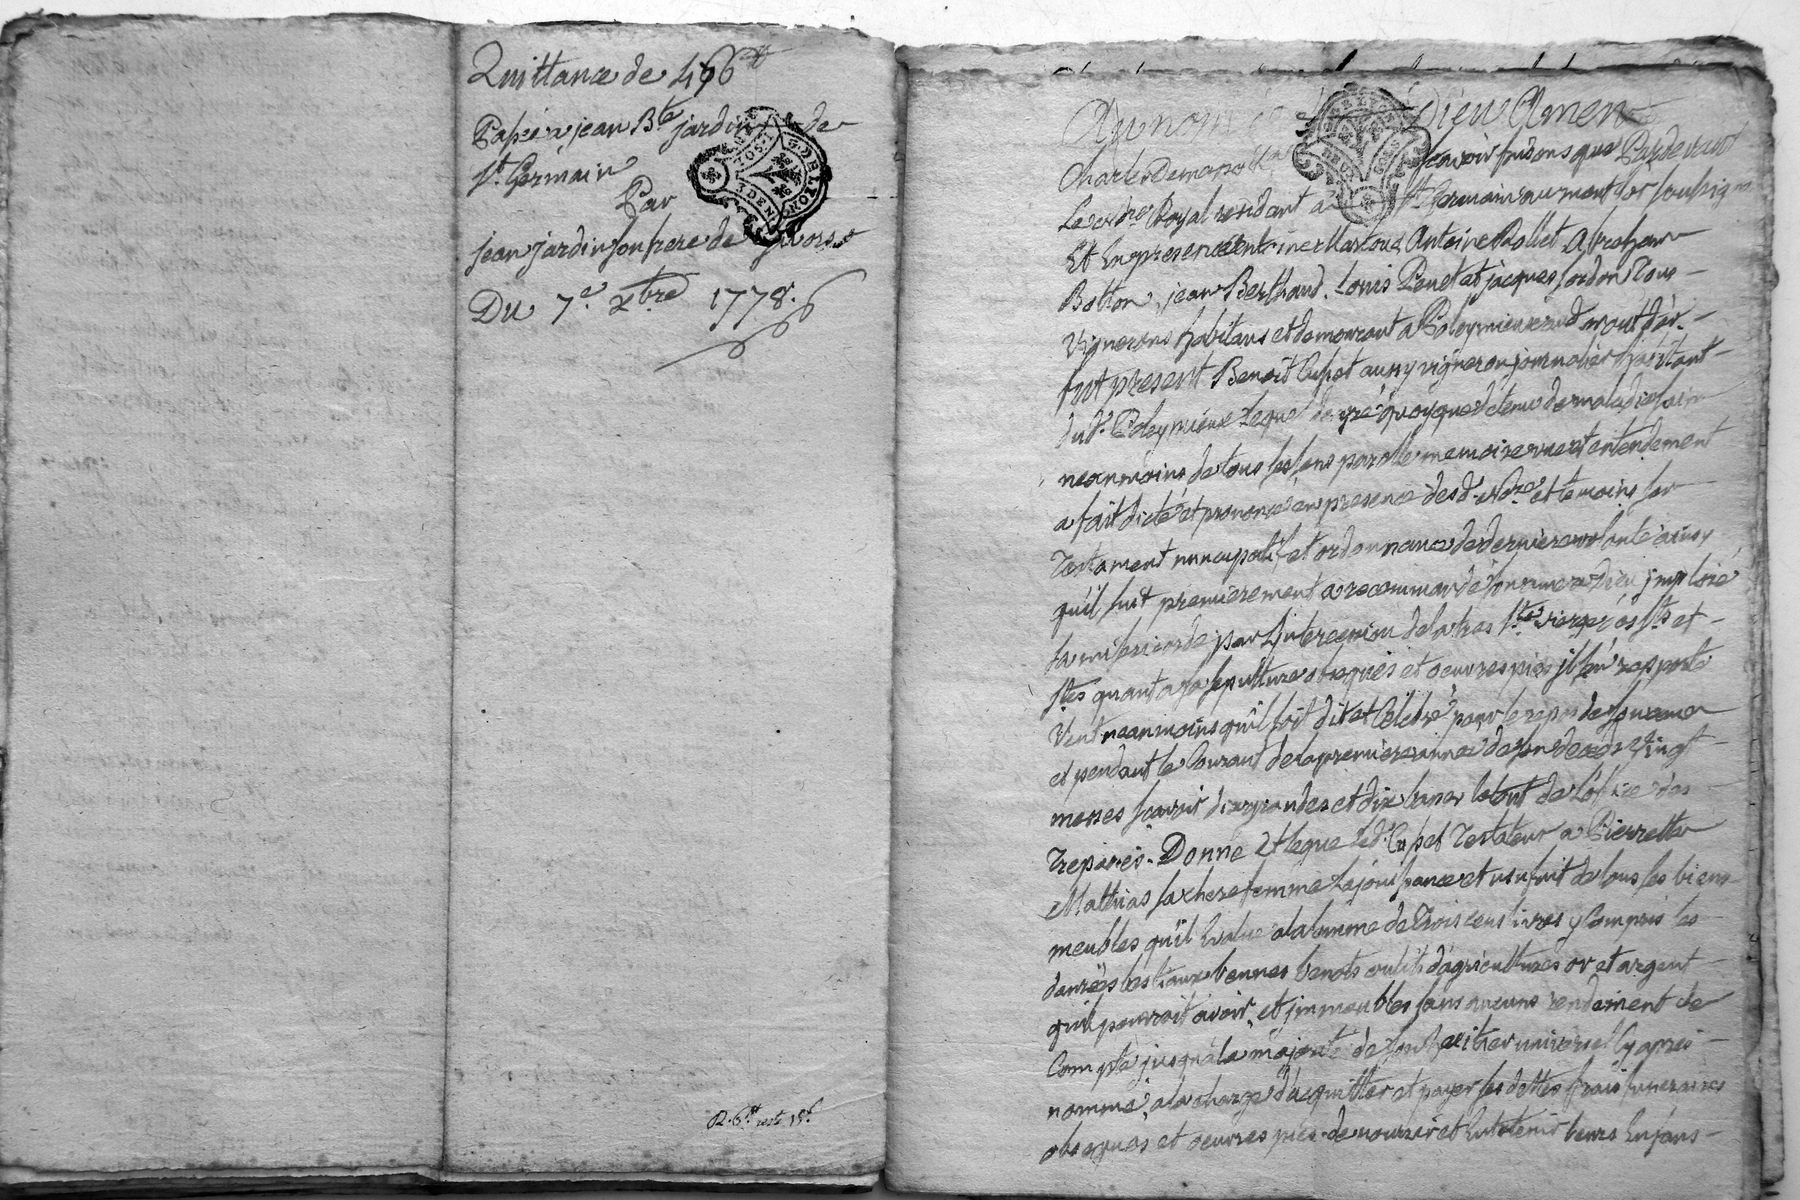 Quittance de 496tt
Passé a jean Bte jardin de
St. Germain
Par
jean jardin son frere de Givors
Du 7e. xbre 1778.
R. 6tt reste 15s.
GEN. DE LYON
DEUX SOLS
3 DEN
Au nom de Dieu Amen
Charles Demapolla scavoir faisons que Pardevant
Le no.re Royal residant a St. Germain au mont d'or soussigné
Et En presence de Antoine Rollet Abraham
Botton, jean Berthaud, Louis Penet et jacques jordon Tous
Vignerons habitans et demeurant a Poleymieux au d. mont d'or.
fut present Benoit Cupet aussy vigneron journalier habitant
dud. Poleymieux Lequel de gré quoyque detenu de maladie sain
neanmoins de tous ses sens parolle memoire vue et entendement
a fait dicté et prononcé en presence desd. no.re et temoins son
Testament nuncupatif et ordonnance de derniere volonté ainsy
qu'il suit premierement a recommandé son ame a Dieu imploré
sa misericorde par L'intercession de la tres Ste vierge des Sts et
Stes quant a sa sepulture obseques et oeuvres pies il s'en rapporte
Veut neanmoins qu'il soit dit et Celebré pour le repos de son ame
et pendant le Courant de la premiere année de son deces vingt
messes scavoir dix grandes et dix basses le tout de L'office des
Trepassés. Donne Et legue led. Cupet Testateur a Pierrette
Mathias sa chere femme La jouissance et usufruit de tous ses biens
meubles qu'il Evalue a la somme de Trois cens livres y Compris les
danrées bestiaux bennes benots outils d'agricultures or et argent
qu'il pourroit avoir, et immeubles sans aucuns rendement de
Compte jusqu'a la majorité de son heritier universel Cy apres
nommé, a la charge d'acquitter et payer ses dettes frais funeraires
obseques et oeuvres pies de nourrir et Entretenir leurs Enfans